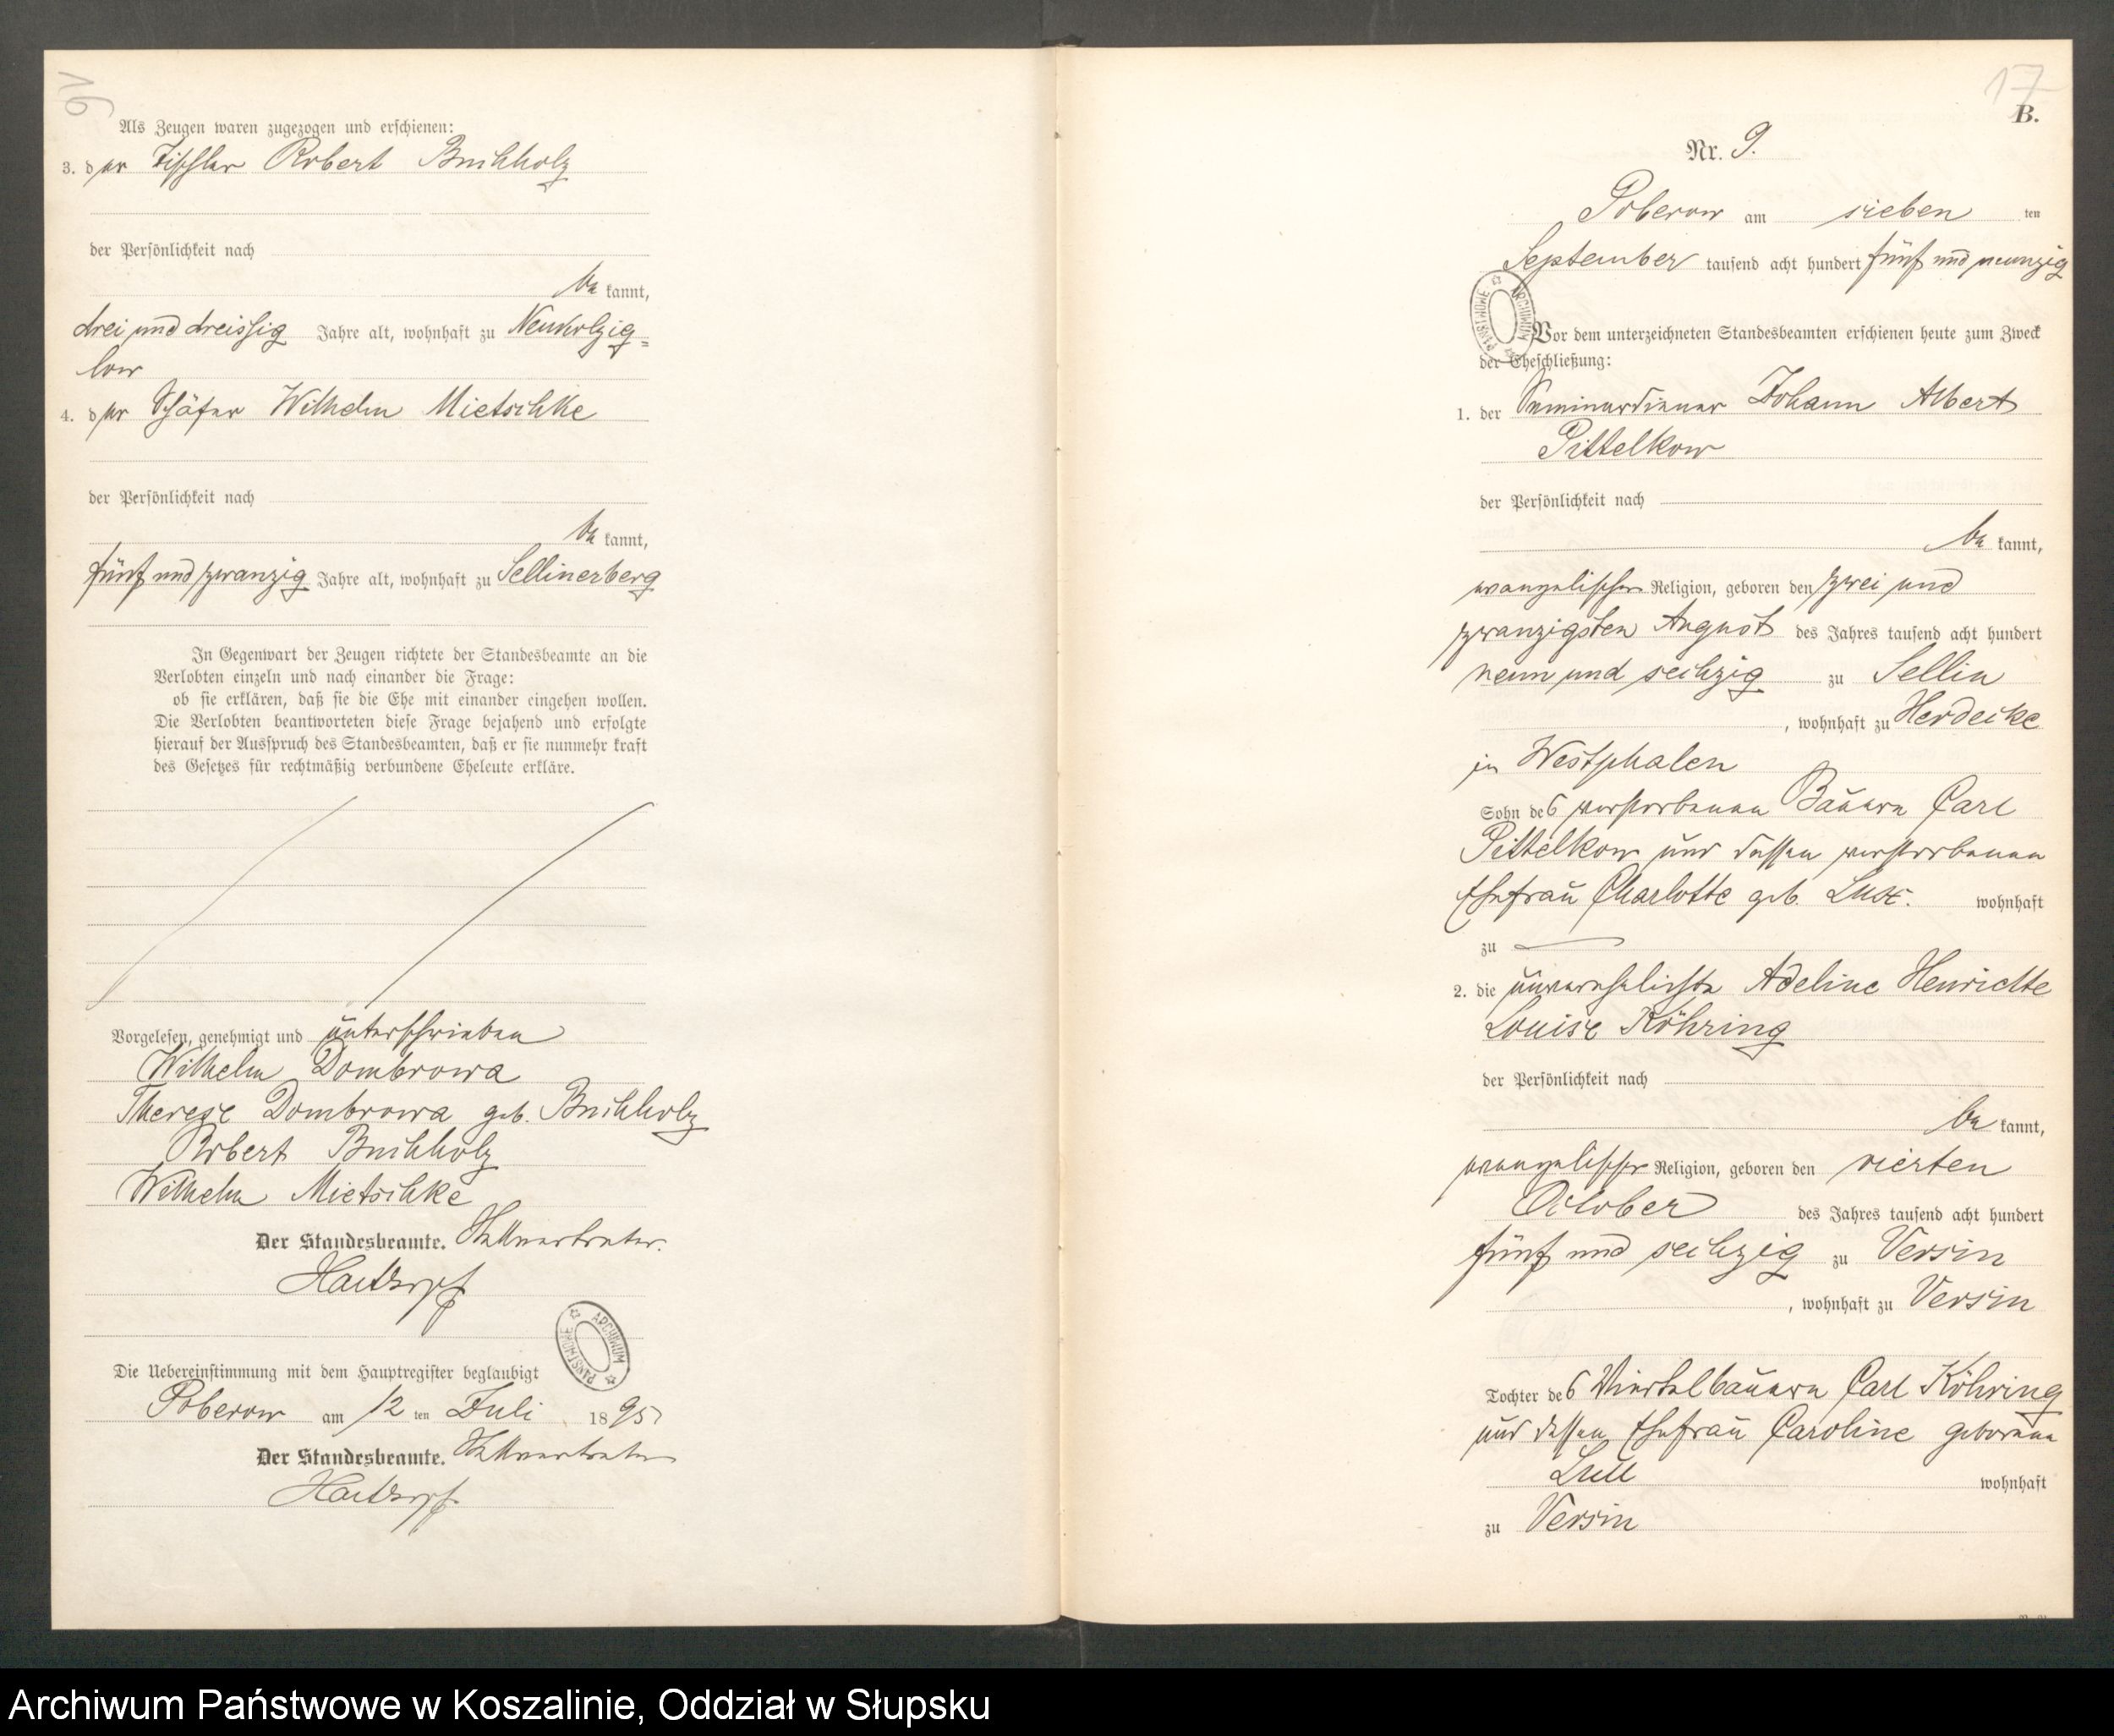 16v
Als Zeugen waren zugezogen und erschienen:
3. der Tischler Robert Buchholz
der Persönlichkeit nach
be kannt,
drei und dreissig Jahre alt, wohnhaft zu Neukolzig=
low
4. der Schäfer Wilhelm Mietschke
der Persönlichkeit nach
be kannt,
fünf und zwanzig Jahre alt, wohnhaft zu Sellinerberg
In Gegenwart der Zeugen richtete der Standesbeamte an die
Verlobten einzeln und nach einander die Frage:
ob sie erklären, daß sie die Ehe mit einander eingehen wollen.
Die Verlobten beantworteten diese Frage bejahend und erfolgte
hierauf der Ausspruch des Standesbeamten, daß er sie nunmehr kraft
des Gesetzes für rechtmäßig verbundene Eheleute erkläre.
Vorgelesen, genehmigt und unterschrieben
Wilhelm Dombrowa
Therese Dombrowa geb. Buchholz
Robert Buchholz
Wilhelm Mietschke
Der Standesbeamte. Stellvertreter.
ARCHIWUM PAŃSTWOWE
Die Uebereinstimmung mit dem Hauptregister beglaubigt
Poberow am 12 ten Juli 1895
Der Standesbeamte. Stellvertreter
17
B.
Nr. 9.
Poberow am sieben ten
September tausend acht hundert fünf und neunzig
ARCHIWUM PAŃSTWOWE
Vor dem unterzeichneten Standesbeamten erschienen heute zum Zweck
der Eheschließung:
1. der Seminardiener Johann Albert
Pittelkow
der Persönlichkeit nach
be kannt,
evangelischer Religion, geboren den zwei und
zwanzigsten August des Jahres tausend acht hundert
neun und sechzig zu Sellin
, wohnhaft zu Herdecke
in Westphalen
Sohn des verstorbenen Bauern Carl
Pittelkow und dessen verstorbenen
Ehefrau Charlotte geb. wohnhaft
zu
2. die unverehelichte Adeline Henriette
Louise Röhring
der Persönlichkeit nach
be kannt,
evangelischer Religion, geboren den vierten
October des Jahres tausend acht hundert
fünf und sechzig zu Versin
, wohnhaft zu Versin
Tochter des Viertelbauern Carl Röhring
und dessen Ehefrau Caroline geborene
wohnhaft
zu Versin
Archiwum Państwowe w Koszalinie, Oddział w Słupsku